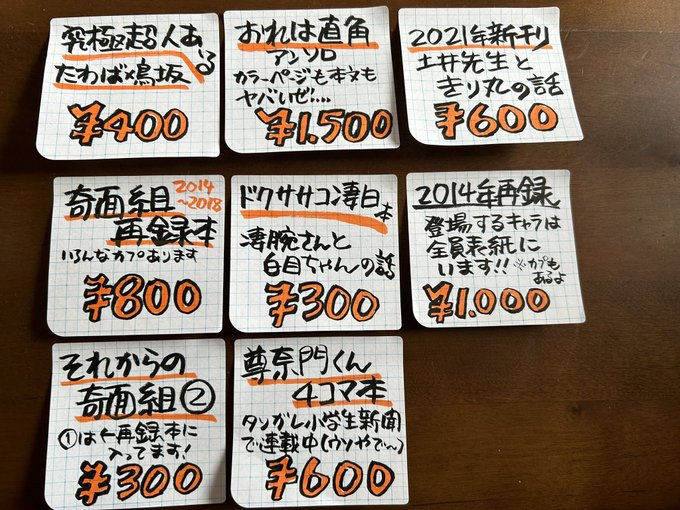 究極超人あ〜る
たわば×鳥坂
¥400
おれは直角
アンソロ
カラーページも本文も
ヤバいぜ....
¥1.500
2021年新刊
土井先生と
きり丸の話
¥600
奇面組
2014
〜2018
再録本
いろんなカプあります
¥800
ドクササコ凄白本
凄腕さんと
白目ちゃんの話
¥300
2014年再録
登場するキャラは
全員表紙に
います!! ※カプも
あるよ
¥1.000
それからの
奇面組②
①は←再録本に
入ってます!
¥300
尊奈門くん
4コマ本
タソガレ小学生新聞
で連載中(ウソやで〜)
¥600